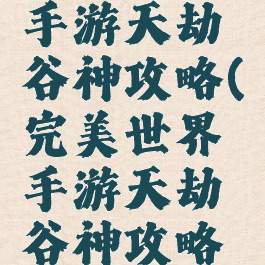 手游天劫
谷神攻略(
完美世界
手游天劫
谷神攻略